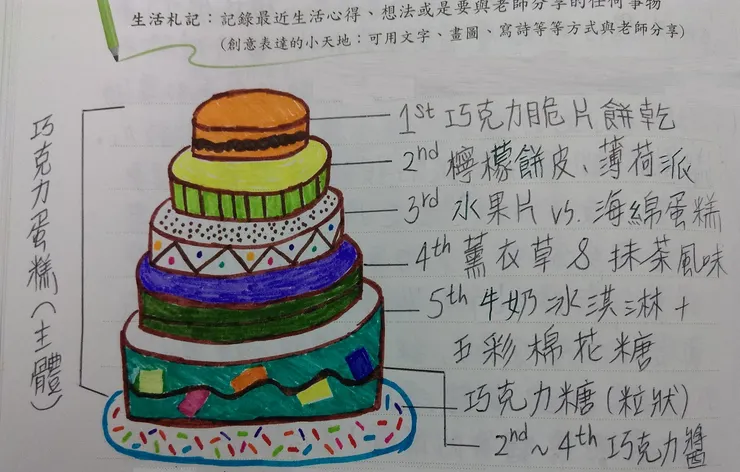 生活札記：記錄最近生活心得、想法或是要與老師分享的任何事物
(創意表達的小天地：可用文字、畫圖、寫詩等等方式與老師分享)
巧克力蛋糕(主體)
1st 巧克力脆片餅乾
2nd 檸檬餅皮、薄荷派
3rd 水果片 vs. 海綿蛋糕
4th 薰衣草 & 抹茶風味
5th 牛奶冰淇淋 +
五彩棉花糖
巧克力糖(粒狀)
2nd ~ 4th 巧克力醬